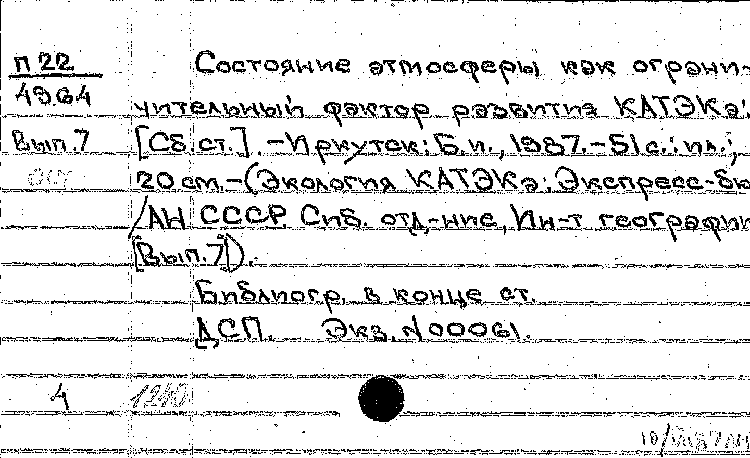 П 22
4964
Вып. 7
Состояние атмосферы как ограни-
чительный фактор развития КАТЭКа:
[Сб. ст.]. – Иркутск: Б.и., 1987. – 51 с.: ил.;
20 см. – (Экология КАТЭКа: Экспресс-бю
/АН СССР. Сиб. отд-ние, Ин-т географии
[Вып. 7]).
Библиогр. в конце ст.
ДСП. Экз. N00061.
4 1240